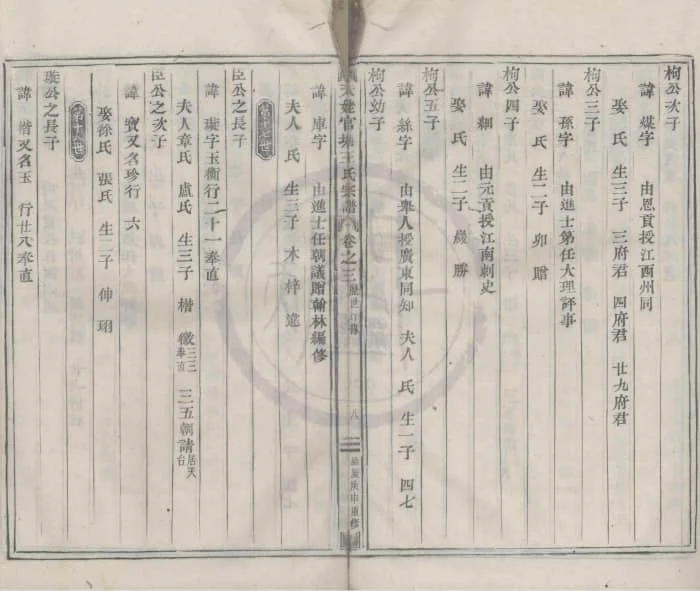 枸公次子
諱 媒字 由恩貢授江西州同
娶 氏 生三子 三府君 四府君 廿九府君
枸公三子
諱 孫字 由進士第任大理評事
娶 氏 生二子 卯 贈
枸公四子
諱 糊 由元貢授江南刺史
娶 氏 生二子 歲 勝
枸公五子
諱 繇字 由舉人授廣東同知 夫人 氏 生一子 四七
枸公幼子
王氏宗譜 卷之三 歷世 八 庚申重修
諱 庫字 由進士任朝議贈翰林編修
夫人 氏 生三子 木 梓 達
臣公之長子
諱 璇字玉衡行二十一奉直
夫人章氏 盧氏 生三子 楷 徽三三奉直 三五朝請居天台
臣公之次子
諱 寶又名珍行 六
娶徐氏 張氏 生二子 伸 珝
璇公之長子
諱 楷又名玉 行廿八奉直